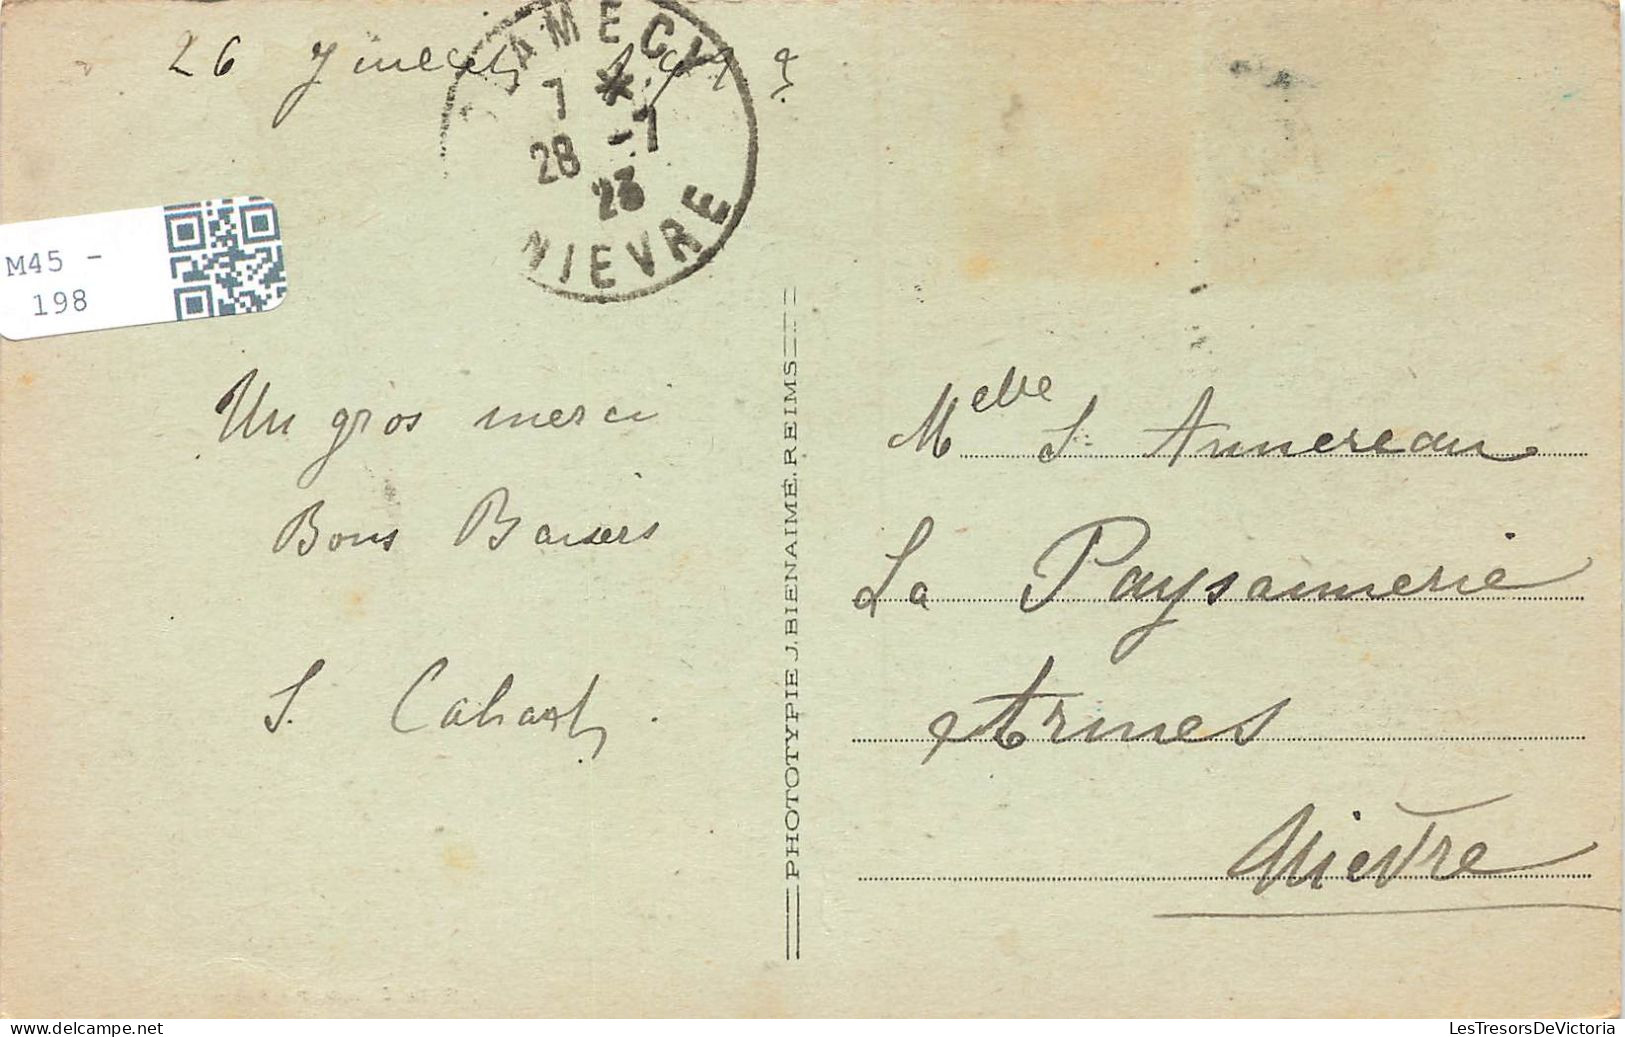 26
CLAMECY
7 *
28 -7
23
NIEVRE
M45 -
198
Un gros merci
Bons Baisers
S.
PHOTOTYPIE J. BIENAIMÉ. REIMS
Melle S. Annereau
La Paysannerie
Armes
Nièvre
delcampe.net
LesTresorsDeVictoria